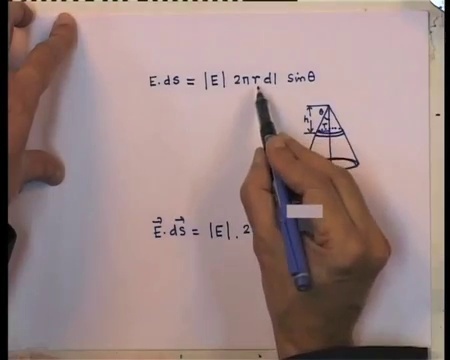 E.ds = |E| 2πrdl sinθ
θ
h
r
E⃗.dS⃗ = |E|. 2